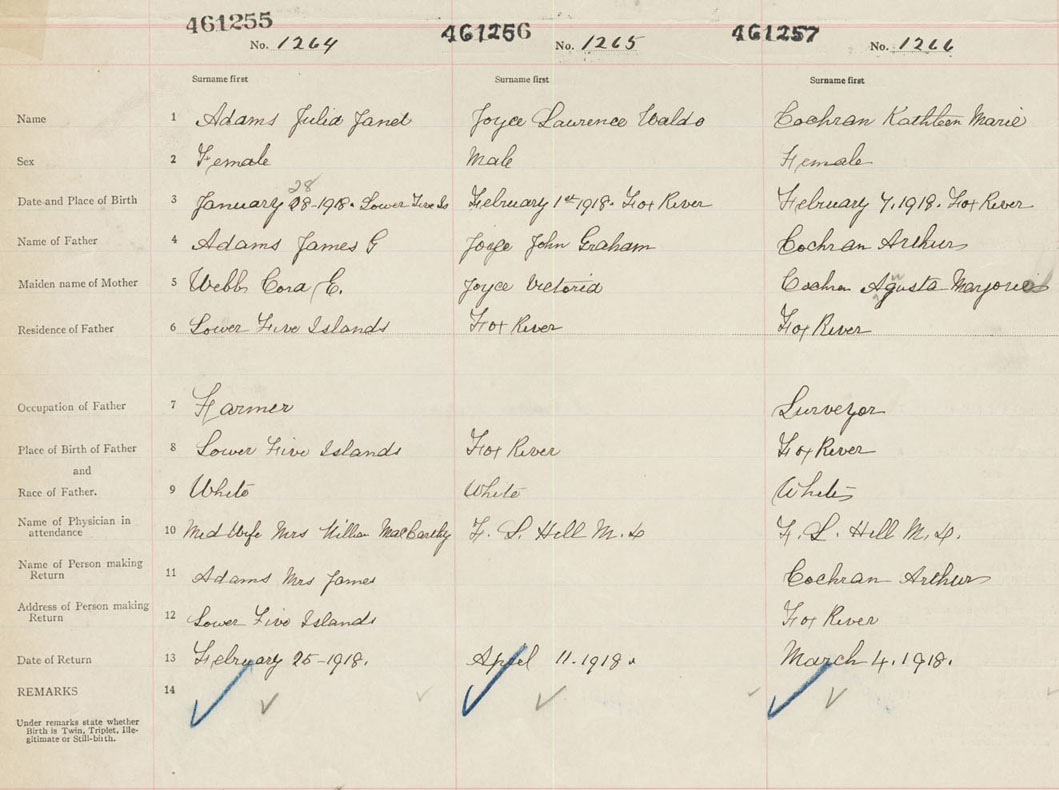 461255 461256 461257
No. 1264 No. 1265 No. 1266
Surname first Surname first Surname first
Name 1 Adams Julia Janet Joyce Laurence Waldo Cochran Kathleen Marie
Sex 2 Female Male Female
28
Date and Place of Birth 3 January 28-1918. Lower Five Is February 1st 1918. Fox River February 7, 1918. Fox River
Name of Father 4 Adams James G Joyce John Graham Cochran Arthur
Maiden name of Mother 5 Webb Cora E. Joyce Victoria Cochran Agusta Marjorie
Residence of Father 6 Lower Five Islands Fox River Fox River
Occupation of Father 7 Farmer Surveyor
Place of Birth of Father 8 Lower Five Islands Fox River Fox River
and
Race of Father. 9 White White White
Name of Physician in
attendance 10 Mid Wife Mrs William MacCarthy F. L. Hill M. D F. L. Hill M. D.
Name of Person making
Return 11 Adams Mrs James Cochran Arthur
Address of Person making
Return 12 Lower Five Islands Fox River
Date of Return 13 February 25-1918. April 11. 1918. March 4. 1918.
REMARKS 14
Under remarks state whether
Birth is Twin, Triplet, Ille-
gitimate or Still-birth.